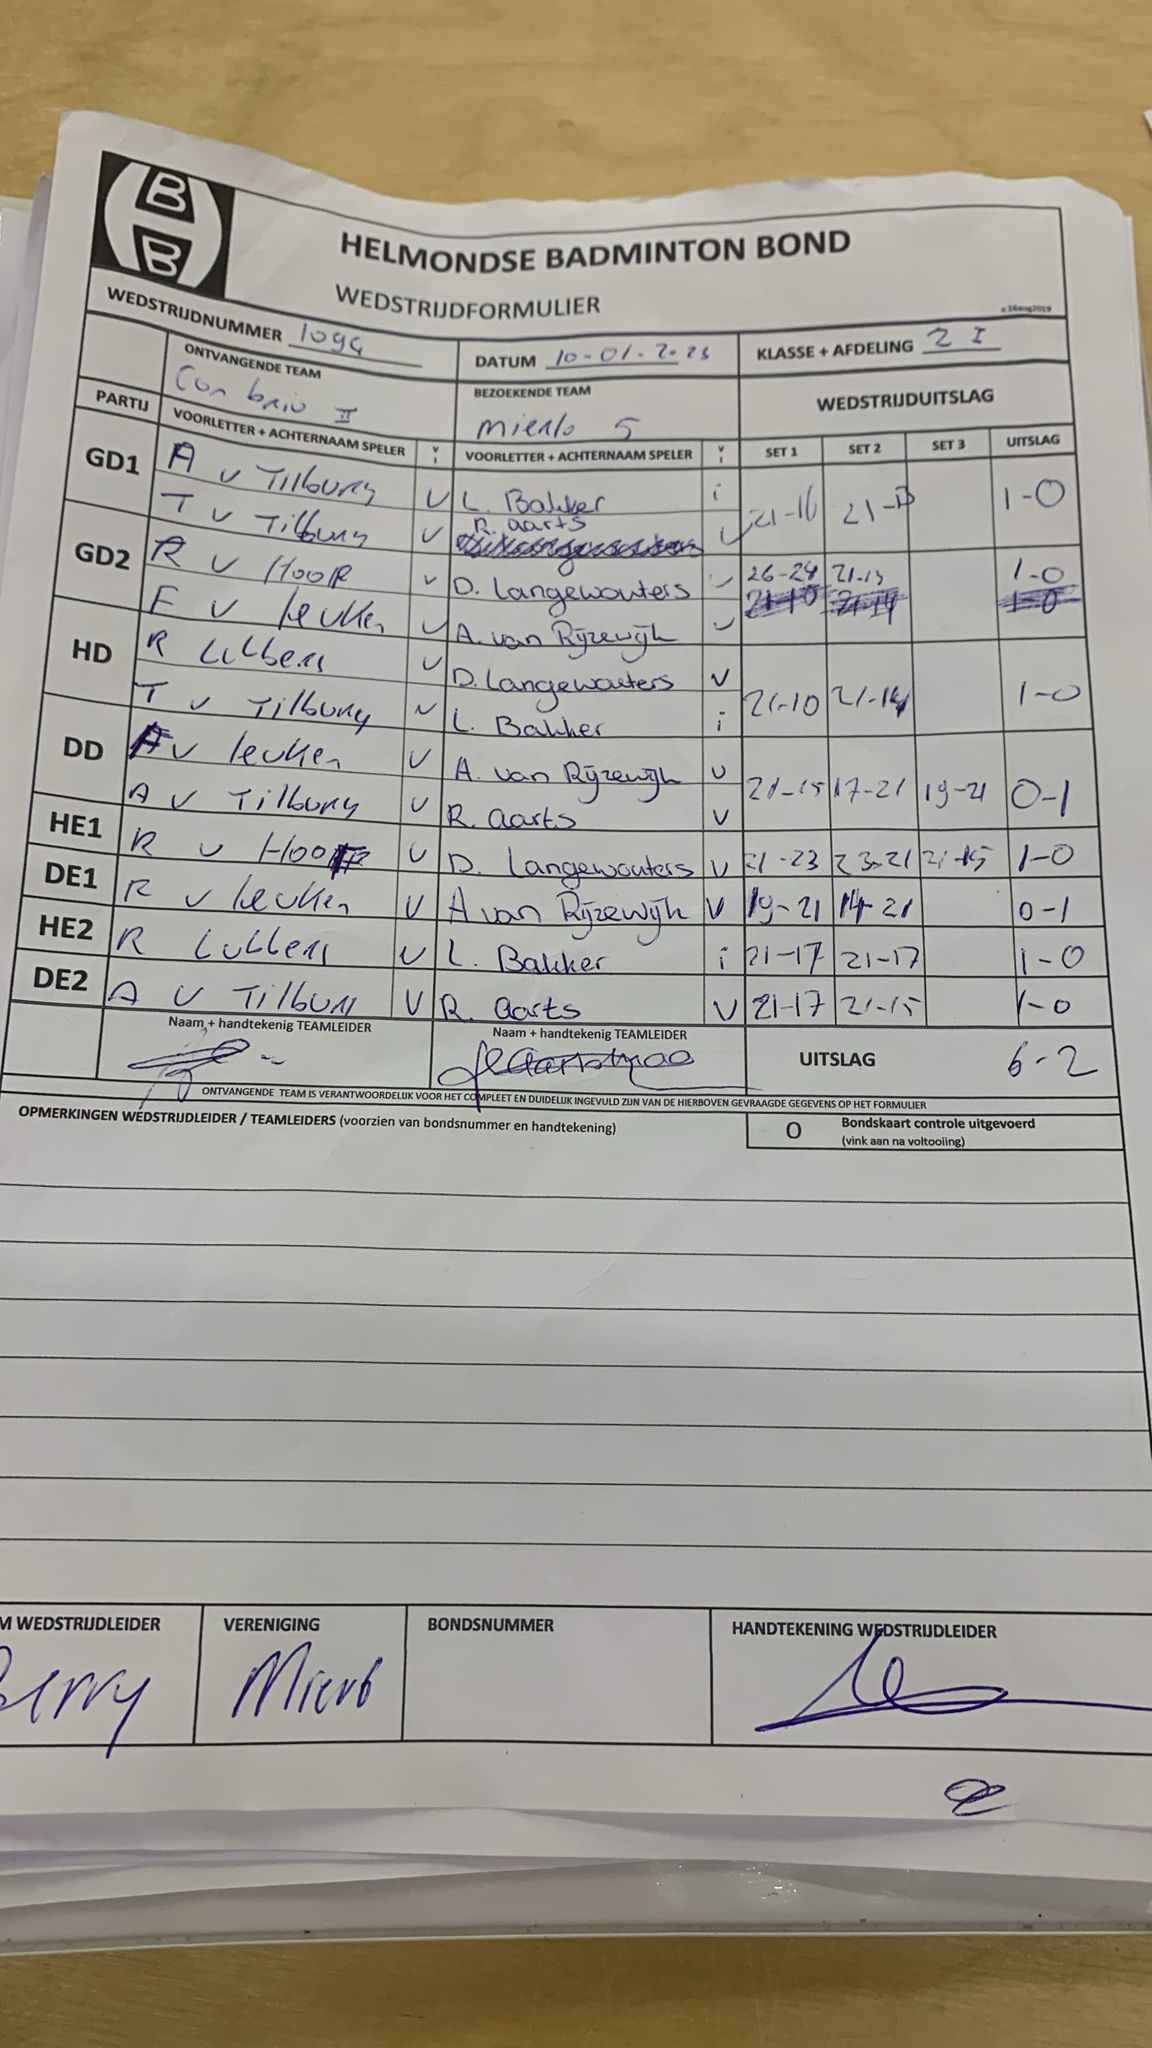 HELMONDSE BADMINTON BOND
WEDSTRIJDFORMULIER
WEDSTRIJDNUMMER 1094
DATUM 10-01-2023
KLASSE + AFDELING 2 I
ONTVANGENDE TEAM
Con brio II
BEZOEKENDE TEAM
mierlo 5
WEDSTRIJDUITSLAG
PARTIJ VOORLETTER + ACHTERNAAM SPELER V I VOORLETTER + ACHTERNAAM SPELER V I SET 1 SET 2 SET 3 UITSLAG
GD1 A v Tilburg V L. Bakker i 21-16 21-13 1-0
T v Tilburg V R. aarts V
GD2 R v Hoof V D. Langewouters V 26-24 21-13 1-0
F v leuken V A. van Rijzewijk V
HD R Lubbers V D. Langewouters V 21-10 21-14 1-0
T v Tilburg V L. Bakker i
DD v leuken V A. van Rijzewijk V 21-15 17-21 19-21 0-1
A v Tilburg V R. aarts V
HE1 R v Hoof V D. Langewouters V 21-23 23-21 21-15 1-0
DE1 R v leuken V A van Rijzewijk V 19-21 14-21 0-1
HE2 R Lubbers V L. Bakker i 21-17 21-17 1-0
DE2 A v Tilburg V R. aarts V 21-17 21-15 1-0
Naam + handtekenig TEAMLEIDER
Naam + handtekenig TEAMLEIDER
UITSLAG 6-2
ONTVANGENDE TEAM IS VERANTWOORDELIJK VOOR HET COMPLEET EN DUIDELIJK INGEVULD ZIJN VAN DE HIERBOVEN GEVRAAGDE GEGEVENS OP HET FORMULIER
OPMERKINGEN WEDSTRIJDLEIDER / TEAMLEIDERS (voorzien van bondsnummer en handtekening)
O Bondskaart controle uitgevoerd
(vink aan na voltooiing)
M WEDSTRIJDLEIDER
VERENIGING
BONDSNUMMER
HANDTEKENING WEDSTRIJDLEIDER
Berry
Mierlo